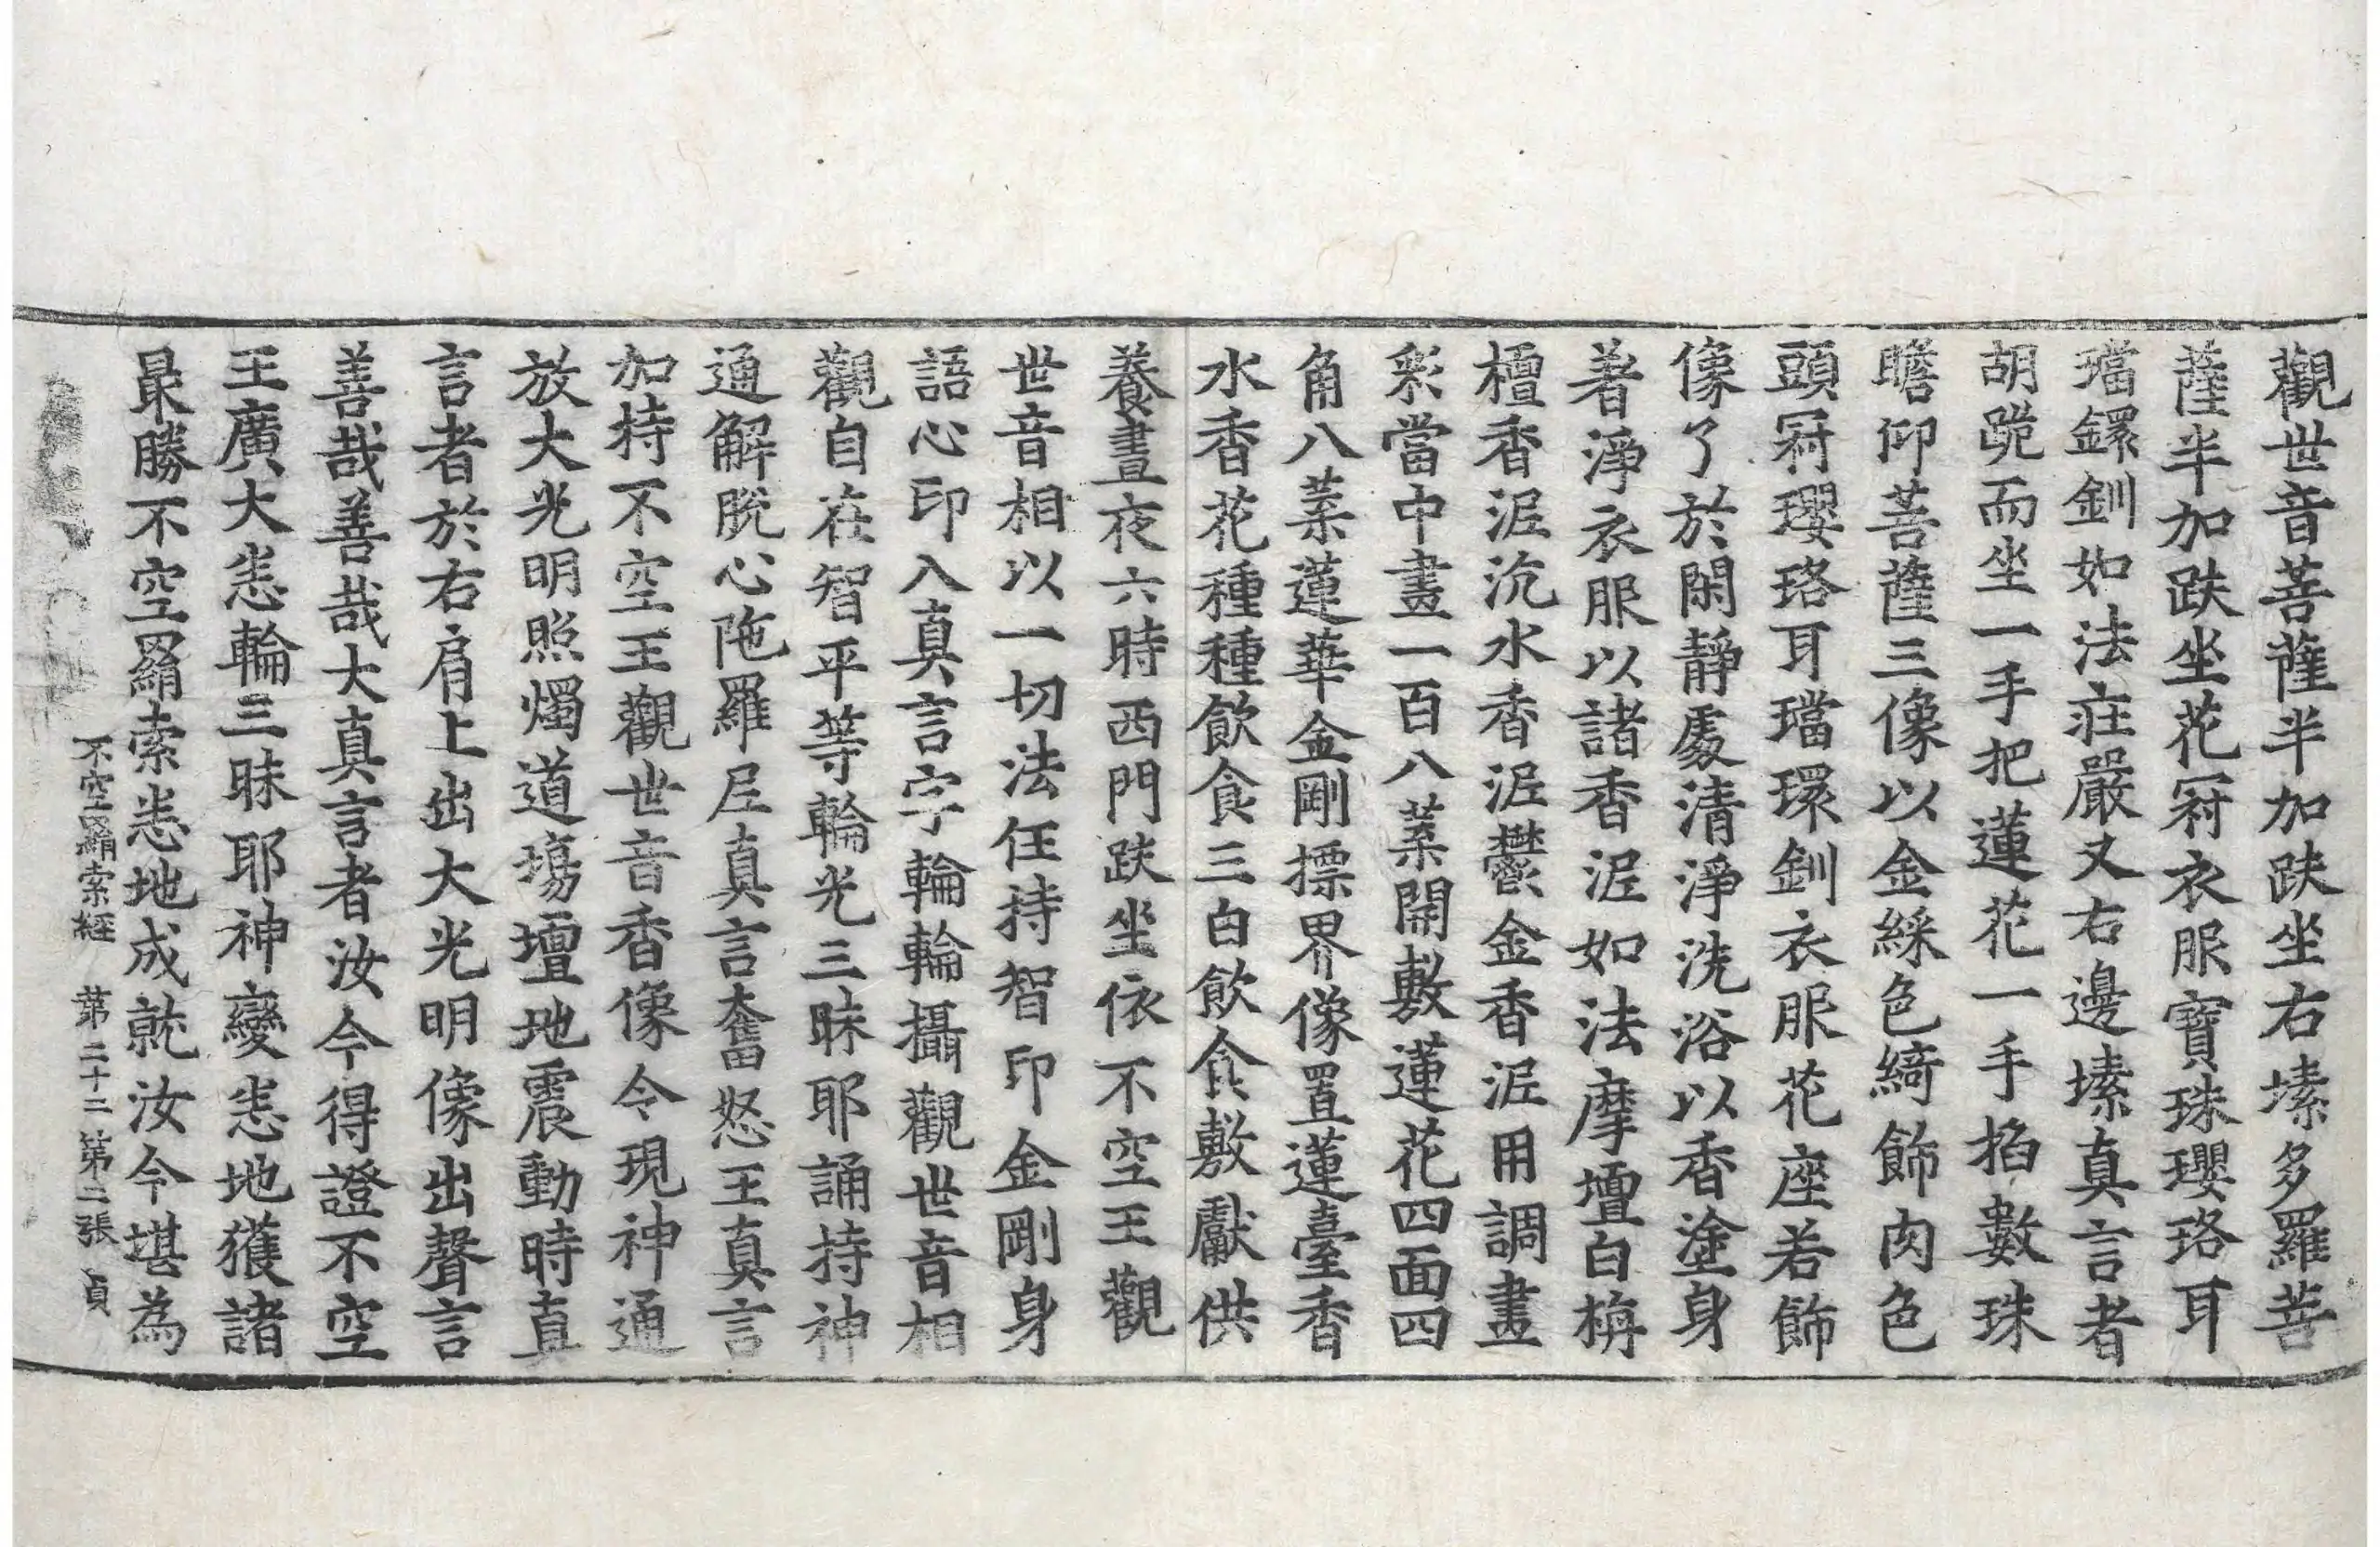 觀世音菩薩半加趺坐右塐多羅菩
薩半加趺坐花冠衣服寶珠瓔珞耳
璫鐶釧如法莊嚴又右邊塐真言者
胡跪而坐一手把蓮花一手掐數珠
瞻仰菩薩三像以金綵色綺飾肉色
頭冠瓔珞耳璫環釧衣服花座若飾
像了於閑靜處清淨洗浴以香塗身
著淨衣服以諸香泥如法摩壇白栴
檀香泥沉水香泥鬱金香泥用調畫
彩當中畫一百八葉開敷蓮花四面四
角八葉蓮華金剛摽界像置蓮臺香
水香花種種飲食三白飲食敷獻供
養晝夜六時西門趺坐依不空王觀
世音相以一切法任持智印金剛身
語心印入真言字輪輪攝觀世音相
觀自在智平等輪光三昧耶誦持神
通解脫心陁羅尼真言奮怒王真言
加持不空王觀世音香像令現神通
放大光明照燭道場壇地震動時真
言者於右肩上出大光明像出聲言
善哉善哉大真言者汝今得證不空
王廣大悉輪三昧耶神變悉地獲諸
最勝不空羂索悉地成就汝今堪為
不空羂索經 第二十二 第二張 貞